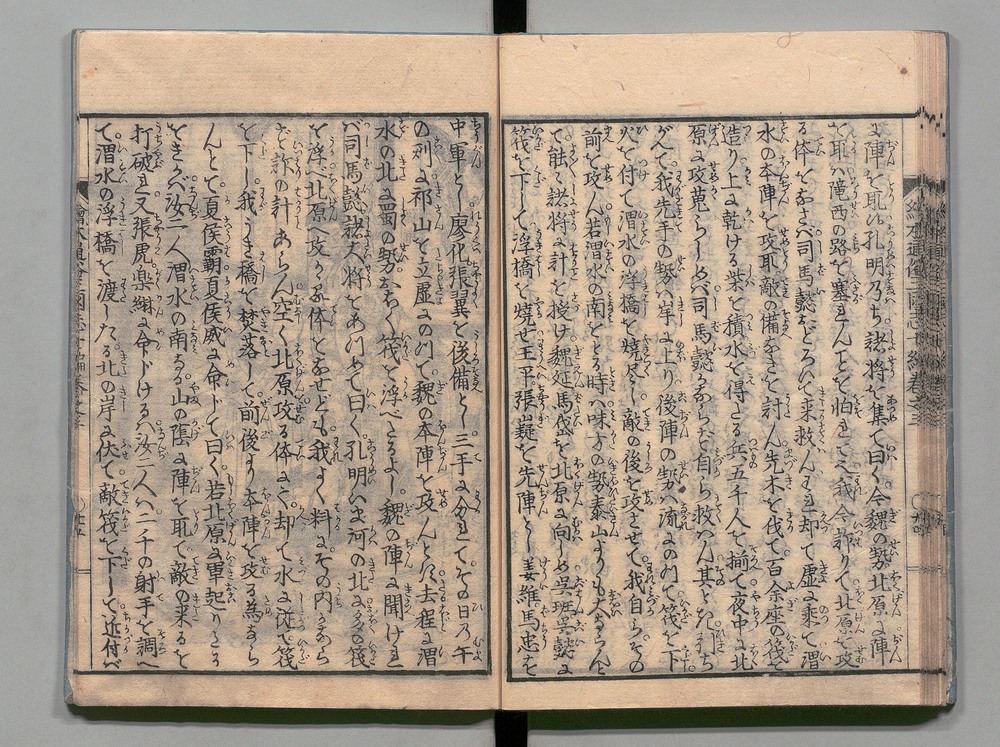 に陣を取ル孔明乃ち諸将を集て曰く今魏の勢北原に陣
を取ハ隴西の路を塞まんことを怕ましてこ我今詐りて北原を攻
る体をなさバ司馬懿おどろひて来救んしまし却て虚に乗て渭
水の本陣を攻取敵の備なきを討ん先木を伐て百余座の筏を
造り上に乾ける柴を積水を得さる兵五千人を揃て夜中に北
原に攻蒐らしめバ司馬懿かならず自ら救ハん其ときたちち
がんて我先手の勢ハ岸に上り後陣の勢ハ流にのつて筏を下
火を付て渭水の浮橋を焼尽し敵の後を攻させて我自らその
前を攻ん若渭水の南をとる時ハ味方の勢泰山よりも大ならんと
て能く諸将に計を授け魏延馬岱を北原に向しめ呉班呉懿に
筏を下して浮橋を焼せ王平張嶷を先陣とし姜維馬忠を
中軍とし廖化張翼を後備とし三手に分れてその日乃午
の刻に祁山を立虚にのつて魏の本陣を攻んとス去程に渭
水の北に蜀の勢おほく筏を浮べたるよし魏の陣に聞けれ
バ司馬懿諸大将をあつめて曰く孔明いま河の北に多の筏
を浮べ北原へ攻かゝる体となせども我よく料にその内かなら
ず詐の計あらん空く北原攻る体にて却て水に従て筏
を下し我うき橋を焚落して前後より本陣を攻る為なら
んとて夏侯覇夏侯威に命して曰く若北原に軍起りさる
ときかバ汝二人渭水の南なる山の陰に陣を取て敵の来るを
打破ま又張虎楽綝に命下けるハ汝二人ハ二千の射手を調へ
て渭水の浮橋を渡したる北の岸に伏て敵筏を下して近付バ